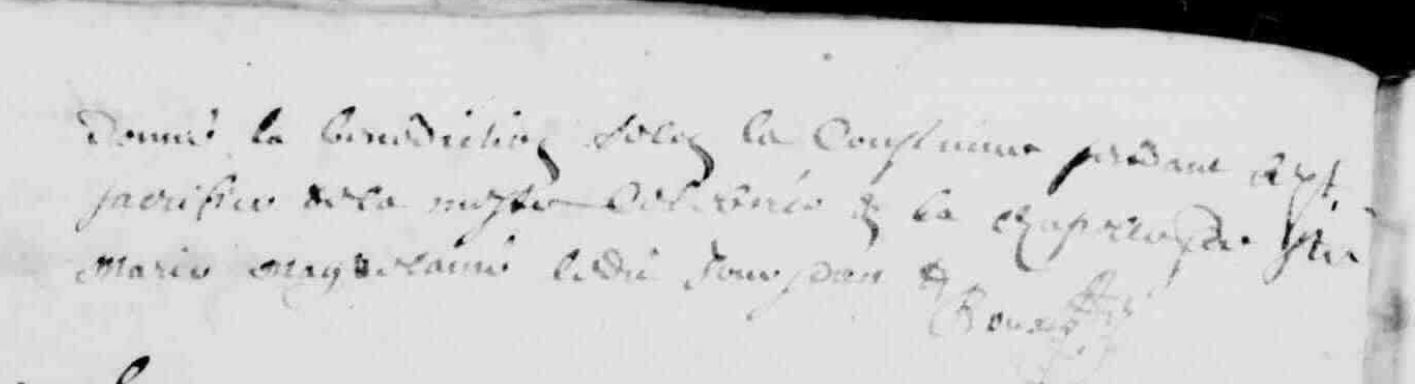 donné la benediction selon la coustume pendant le st
sacrifice de la messe celebrée en la chapelle de Ste
Marie Magdelaine ledit jour et an